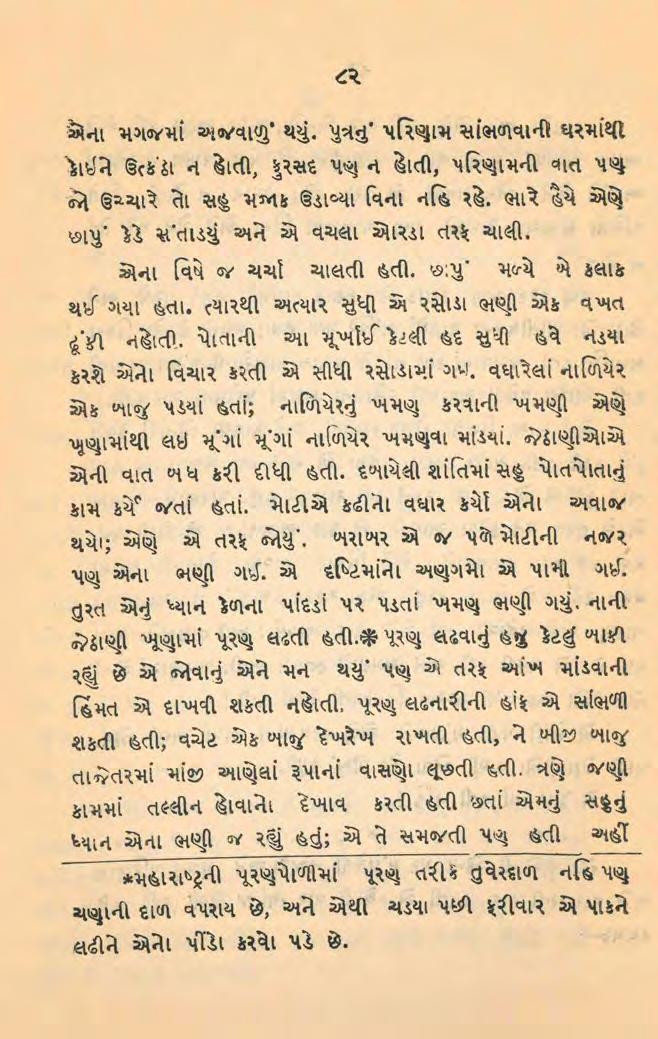 ૮૨
એના મગજમાં અજવાળું થયું. પુત્રનું પરિણામ સાંભળવાની ઘરમાંથી
કોઈને ઉત્કંઠા ન હોતી, ફુરસદ પણ ન હોતી, પરિણામની વાત પણ
જો ઉચ્ચારે તો સહુ મજાક ઉડાવ્યા વિના નહિ રહે. ભારે હૈયે એણે
છાપું કેડે સંતાડયું અને એ વચલા ઓરડા તરફ ચાલી.
એના વિષે જ ચર્ચા ચાલતી હતી. છાપું મળ્યે બે કલાક
થઈ ગયા હતા. ત્યારથી અત્યાર સુધી એ રસોડા ભણી એક વખત
ઢૂંકી નહોતી. પોતાની આ મૂર્ખાઈ કેટલી હદ સુધી હવે નડયા
કરશે એનો વિચાર કરતી એ સીધી રસોડામાં ગઈ. વધારેલાં નાળિયેર
એક બાજુ પડયાં હતાં; નાળિયેરનું ખમણ કરવાની ખમણી એણે
ખૂણામાંથી લઇ મૂંગાં મૂંગાં નાળિયેર ખમણવા માંડયાં. જેઠાણીઓએ
એની વાત બંધ કરી દીધી હતી. દબાયેલી શાંતિમાં સહુ પોતપોતાનું
કામ કર્યે જતાં હતાં. મોટીએ કઢીનો વઘાર કર્યો એનો અવાજ
થયો; એણે એ તરફ જોયું. બરાબર એ જ પળે મોટીની નજર
પણ એના ભણી ગઈ. એ દૃષ્ટિમાંનો અણગમો એ પામી ગઈ.
તુરત એનું ધ્યાન કેળના પાંદડાં પર પડતાં ખમણ ભણી ગયું. નાની
જેઠાણી ખૂણામાં પૂરણ લઢતી હતી.* પૂરણ લઢવાનું હજુ કેટલું બાકી
રહ્યું છે એ જોવાનું એને મન થયું પણ એ તરફ આંખ માંડવાની
હિંમત એ દાખવી શકતી નહોતી. પૂરણ લઢનારીની હાંફ એ સાંભળી
શકતી હતી; વચેટ એક બાજુ દેખરેખ રાખતી હતી, ને બીજી બાજુ
તાજેતરમાં માંજી આણેલાં રૂપાનાં વાસણો લૂછતી હતી. ત્રણે જણી
કામમાં તલ્લીન હોવાનો દેખાવ કરતી હતી છતાં એમનું સહુનું
ધ્યાન એના ભણી જ રહ્યું હતું; એ તે સમજતી પણ હતી અહીં
*મહારાષ્ટ્રની પૂરણપોળીમાં પૂરણ તરીકે તુવેરદાળ નહિ પણ
ચણાની દાળ વપરાય છે, અને એથી ચડયા પછી ફરીવાર એ પાકને
લઢીને એનો પીંડો કરવો પડે છે.